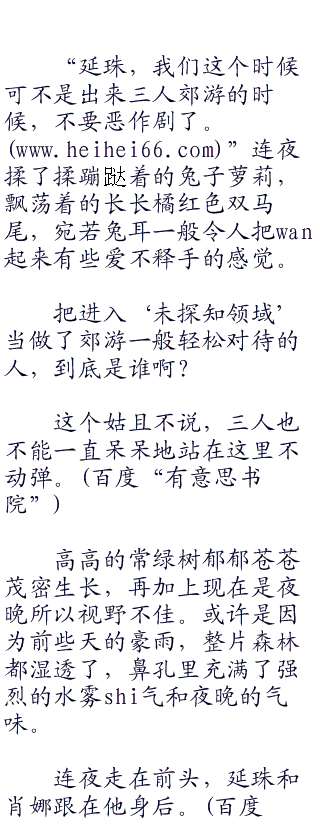 “延珠，我们这个时候
可不是出来三人郊游的时
候，不要恶作剧了。
(www.heihei66.com)”连夜
揉了揉蹦跶着的兔子萝莉，
飘荡着的长长橘红色双马
尾，宛若兔耳一般令人把wan
起来有些爱不释手的感觉。
把进入‘未探知领域’
当做了郊游一般轻松对待的
人，到底是谁啊？
这个姑且不说，三人也
不能一直呆呆地站在这里不
动弹。(百度“有意思书
院”)
高高的常绿树郁郁苍苍
茂密生长，再加上现在是夜
晚所以视野不佳。或许是因
为前些天的豪雨，整片森林
都湿透了，鼻孔里充满了强
烈的水雾shi气和夜晚的气
味。
连夜走在前头，延珠和
肖娜跟在他身后。(百度